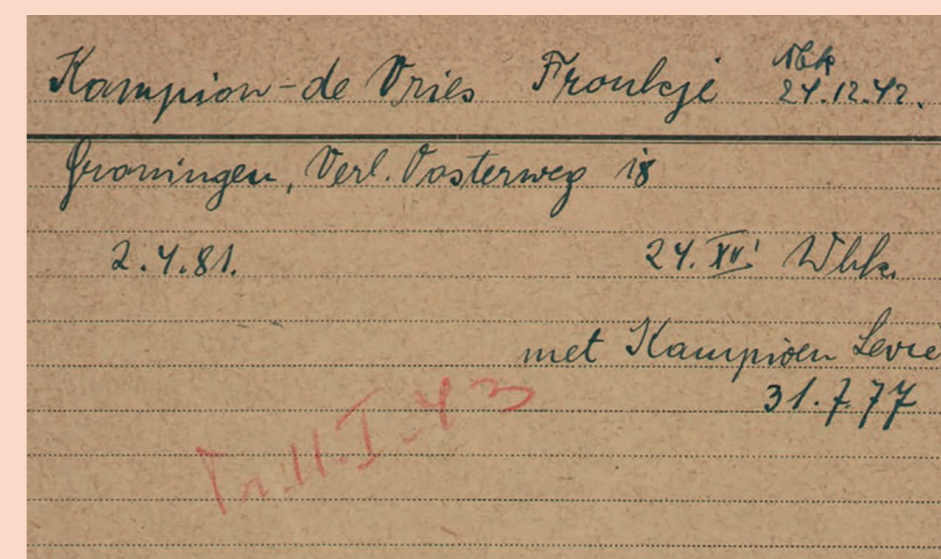 Kampion-de Vries Froukje Wbk
24.12.42.
Groningen, Verl. Oosterweg 18
2.4.81. 24.XII Wbk.
met Kampioen Levie
31.7.77
Tr. 11.I.43